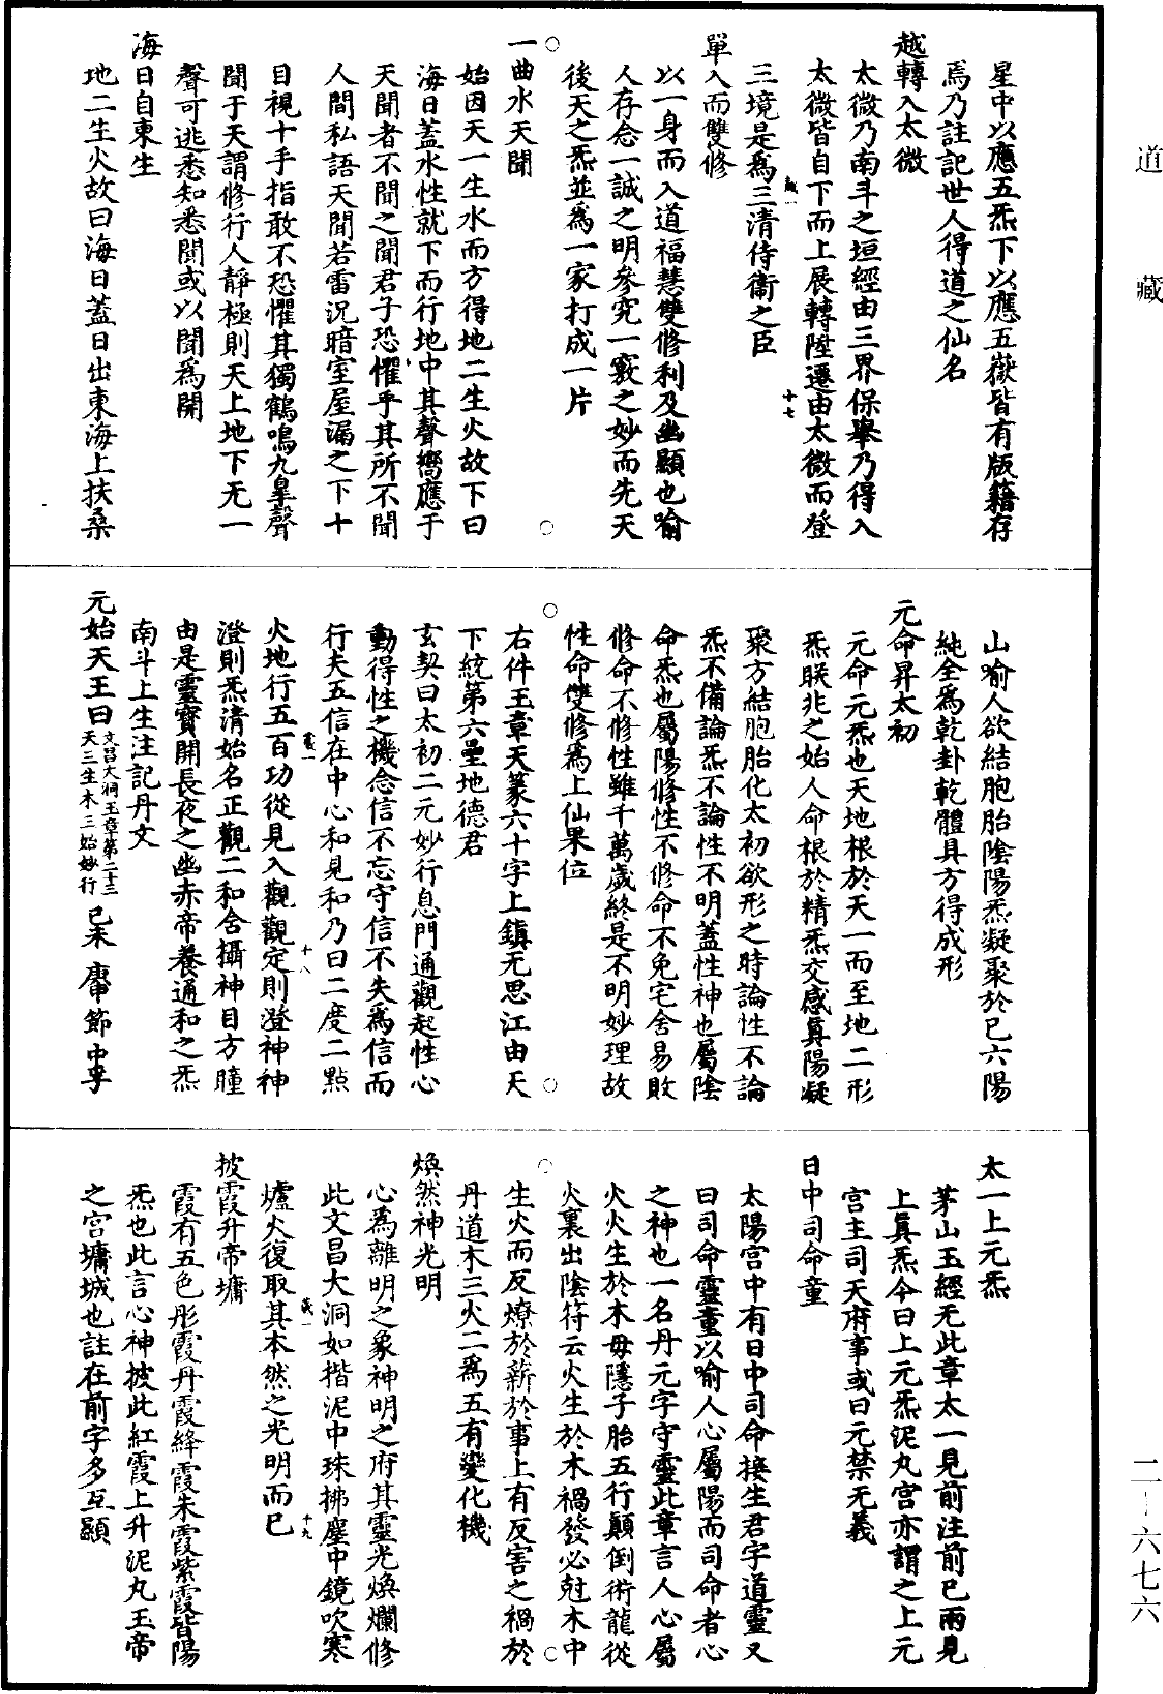 道藏
星中以應五炁下以應五嶽皆有版籍存
焉乃註記世人得道之仙名
越轉入太微
太微乃南斗之垣經由三界保舉乃得入
太微皆自下而上展轉陞遷由太微而登
三境是為三清侍衛之臣
十七
單入而雙修
以一身而入道福慧雙修利及幽顯也喻
人存念一誠之明參究一竅之妙而先天
後天之炁並為一家打成一片
○ ○
一曲水天聞
始因天一生水而方得地二生火故下曰
海日蓋水性就下而行地中其聲嚮應于
天聞者不聞之聞君子恐懼乎其所不聞
人間私語天聞若雷況暗室屋漏之下十
目視十手指敢不恐懼其獨鶴鳴九皋聲
聞于天謂修行人靜極則天上地下无一
聲可逃悉知悉聞或以聞為開
海日自東生
地二生火故曰海日蓋日出東海上扶桑
山喻人欲結胞胎陰陽炁凝聚於已六陽
純全為乾卦乾體具方得成形
元命昇太初
元命元炁也天地根於天一而至地二形
炁眹兆之始人命根於精炁交感真陽凝
聚方結胞胎化太初欲形之時論性不論
炁不備論炁不論性不明蓋性神也屬陰
命炁也屬陽修性不修命不免宅舍易敗
修命不修性雖千萬歲終是不明妙理故
性命雙修為上仙果位
○ ○
右件玉章天篆六十字上鎮无思江由天
下統第六壘地德君
玄契曰太初二元妙行息門通觀起性心
動得性之機念信不忘守信不失為信而
行夫五信在中心和見和乃曰二度二點
十八
火地行五百功從見入觀觀定則澄神神
澄則炁清始名正觀二和含攝神目方瞳
由是靈寶開長夜之幽赤帝養通和之炁
南斗上生注記丹文
元始天王曰文昌大洞玉章第二十三天三生木三始妙行己未 庚申節中孚
太一上元炁
茅山玉經无此章太一見前注前已兩見
上真炁今曰上元炁泥丸宮亦謂之上元
宮主司天府事或曰元禁无義
日中司命童
太陽宮中有日中司命接生君字道靈又
曰司命靈童以喻人心屬陽而司命者心
之神也一名丹元字守靈此章言人心屬
火火生於木母隱子胎五行顛倒術龍從
火裏出陰符云火生於木禍發必尅木中
○ ○
生火而反燎於薪於事上有反害之禍於
丹道木三火二為五有變化機
煥然神光明
心為離明之象神明之府其靈光煥爛修
此文昌大洞如揩泥中珠拂塵中鏡吹寒
爐火復取其本然之光明而已
十九
披霞升帝墉
霞有五色彤霞丹霞絳霞朱霞紫霞皆陽
炁也此言心神披此紅霞上升泥丸玉帝
之宮墉城也註在前字多互顯
二-六七六